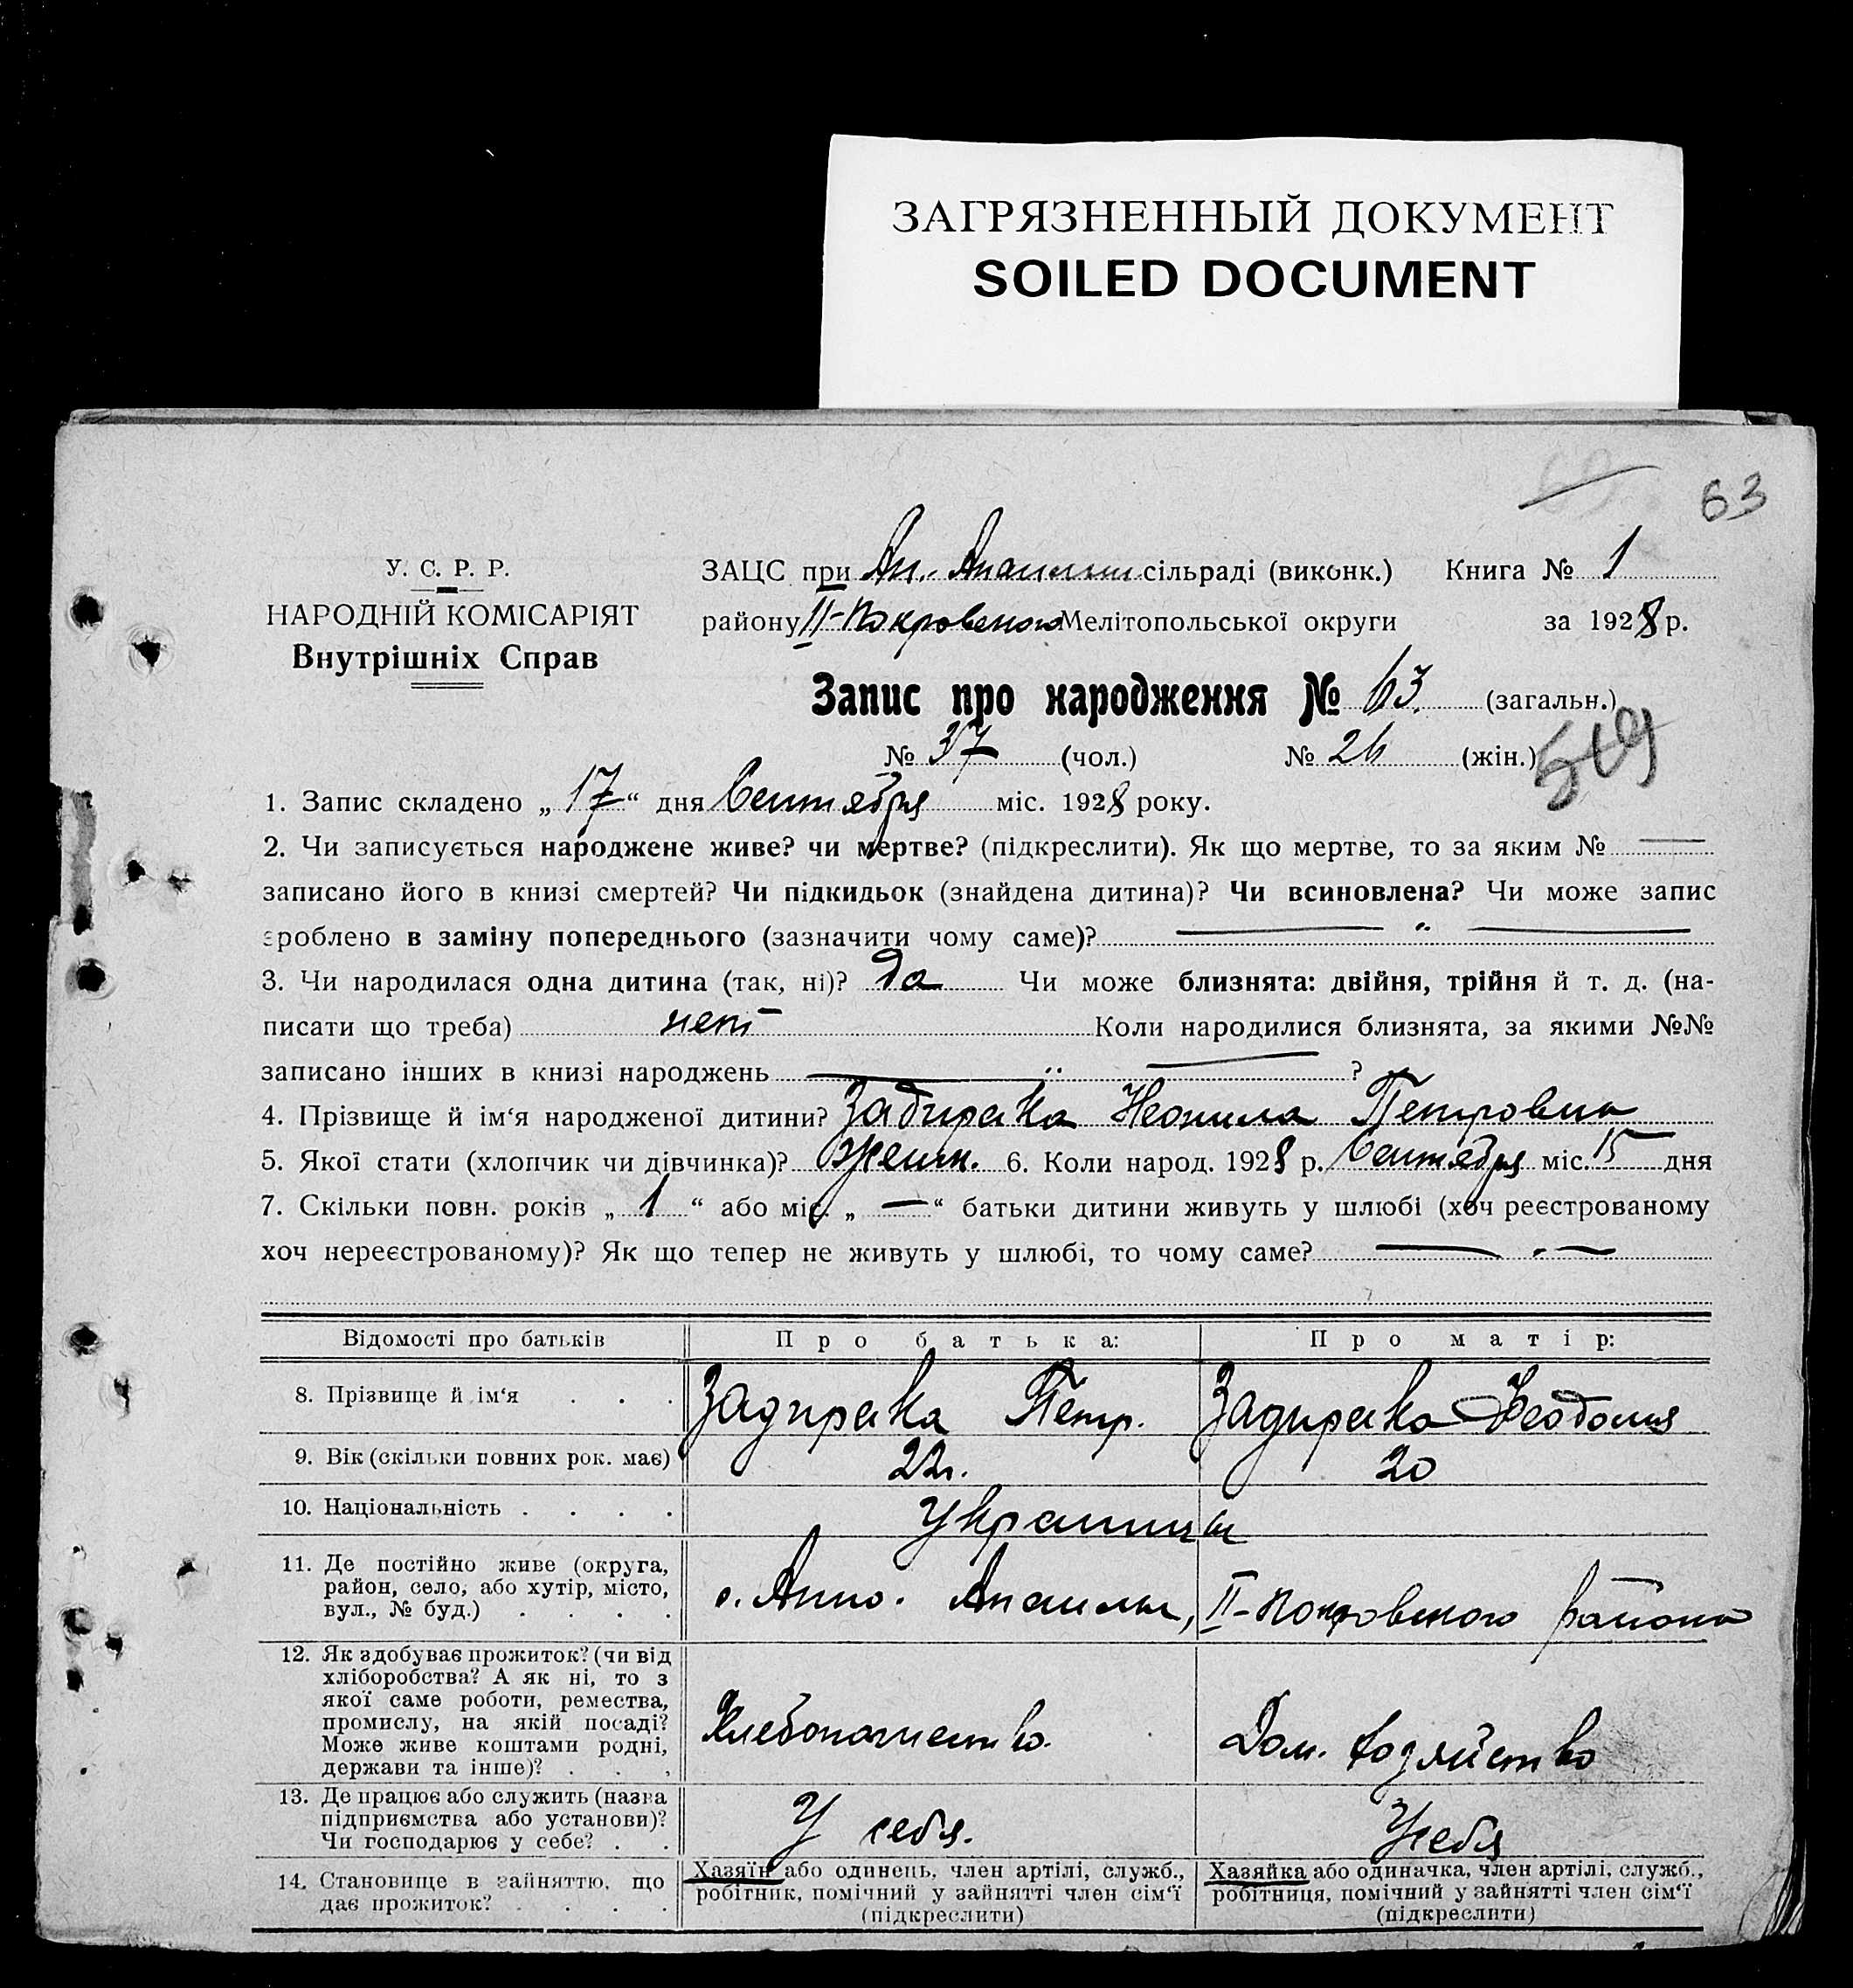 ЗАГРЯЗНЕННЫЙ ДОКУМЕНТ
SOILED DOCUMENT
69 63
У. С. Р. Р.
НАРОДНІЙ КОМІСАРІЯТ
Внутрішніх Справ
ЗАЦС при Ан. сільраді (виконк.) Книга № 1
району ІІ-Покровского Мелітопольської округи за 1928 р.
Запис про народження № 63. (загальн.)
№ 37 (чол.) № 26 (жін.)
1. Запис складено „17“ дня Сентября міс. 1928 року.
2. Чи записується народжене живе? чи мертве? (підкреслити). Як що мертве, то за яким № —
записано його в книзі смертей? Чи підкидьок (знайдена дитина)? Чи всиновлена? Чи може запис
зроблено в заміну попереднього (зазначити чому саме)? — „ —
3. Чи народилася одна дитина (так, ні)? да Чи може близнята: двійня, трійня й т. д. (на-
писати що треба) нет Коли народилися близнята, за якими №№
записано інших в книзі народжень — „ — ?
4. Прізвище й ім‘я народженої дитини? Задирака Неонила Петровна
5. Якої стати (хлопчик чи дівчинка)? женск. 6. Коли народ. 1928 р. Сентября міс. 15 дня
7. Скільки повн. років „1“ або міс. „—“ батьки дитини живуть у шлюбі (хоч реєстрованому
хоч нереєстрованому)? Як що тепер не живуть у шлюбі, то чому саме? — „ —
Відомості про батьків Про батька: Про матір:
8. Прізвище й ім‘я . . . Задирака Петр. Задирака
9. Вік (скільки повних рок. має) 22г. 20
10. Національність . . . . Украинцы
11. Де постійно живе (округа,
район, село, або хутір, місто,
вул., № буд.) . . . .
с. Анно. ІІ-Покровского района
12. Як здобуває прожиток? (чи від
хліборобства? А як ні, то з
якої саме роботи, ремества,
промислу, на якій посаді?
Може живе коштами родні,
держави та інше)? . . .
Хлебопашество. Дом. хозяйство
13. Де працює або служить (назва
підприємства або установи)?
Чи господарює у себе? . .
У себя. У себя
14. Становище в зайняттю, що
дає прожиток? . . . .
Хазяїн або одинець, член артілі, служб.,
робітник, помічний у зайнятті член сім‘ї
(підкреслити)
Хазяйка або одиначка, член артілі, служб.,
робітниця, помічний у зайнятті член сім‘ї
(підкреслити)